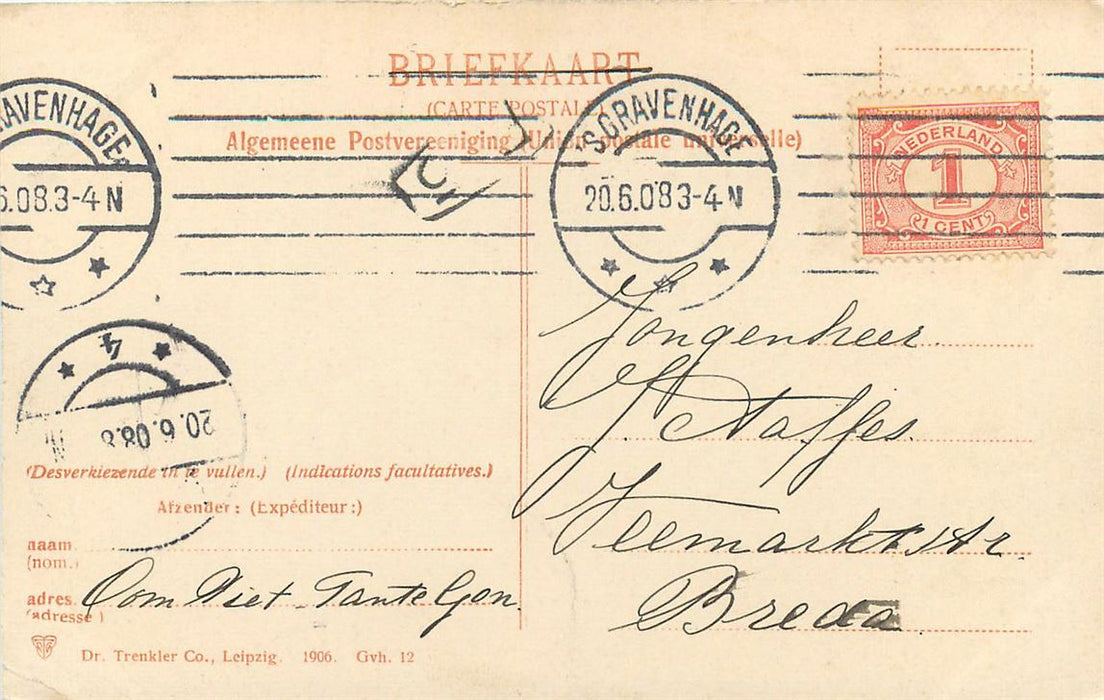 BRIEFKAART
(CARTE POSTALE)
Algemeene Postvereeniging (Union postale universelle)
RAVENHAGE
6.08.3-4 N
'SGRAVENHAGE
20.6.08 3-4 N
NEDERLAND
1
1 CENT
4
20.6.08.8
Jongenheer
Veemarktstr.
Breda
(Desverkiezende in te vullen.) (Indications facultatives.)
Afzender: (Expéditeur:)
naam
(nom.)
adres Oom Piet Tante
(adresse)
Dr. Trenkler Co., Leipzig. 1906. Gvh. 12